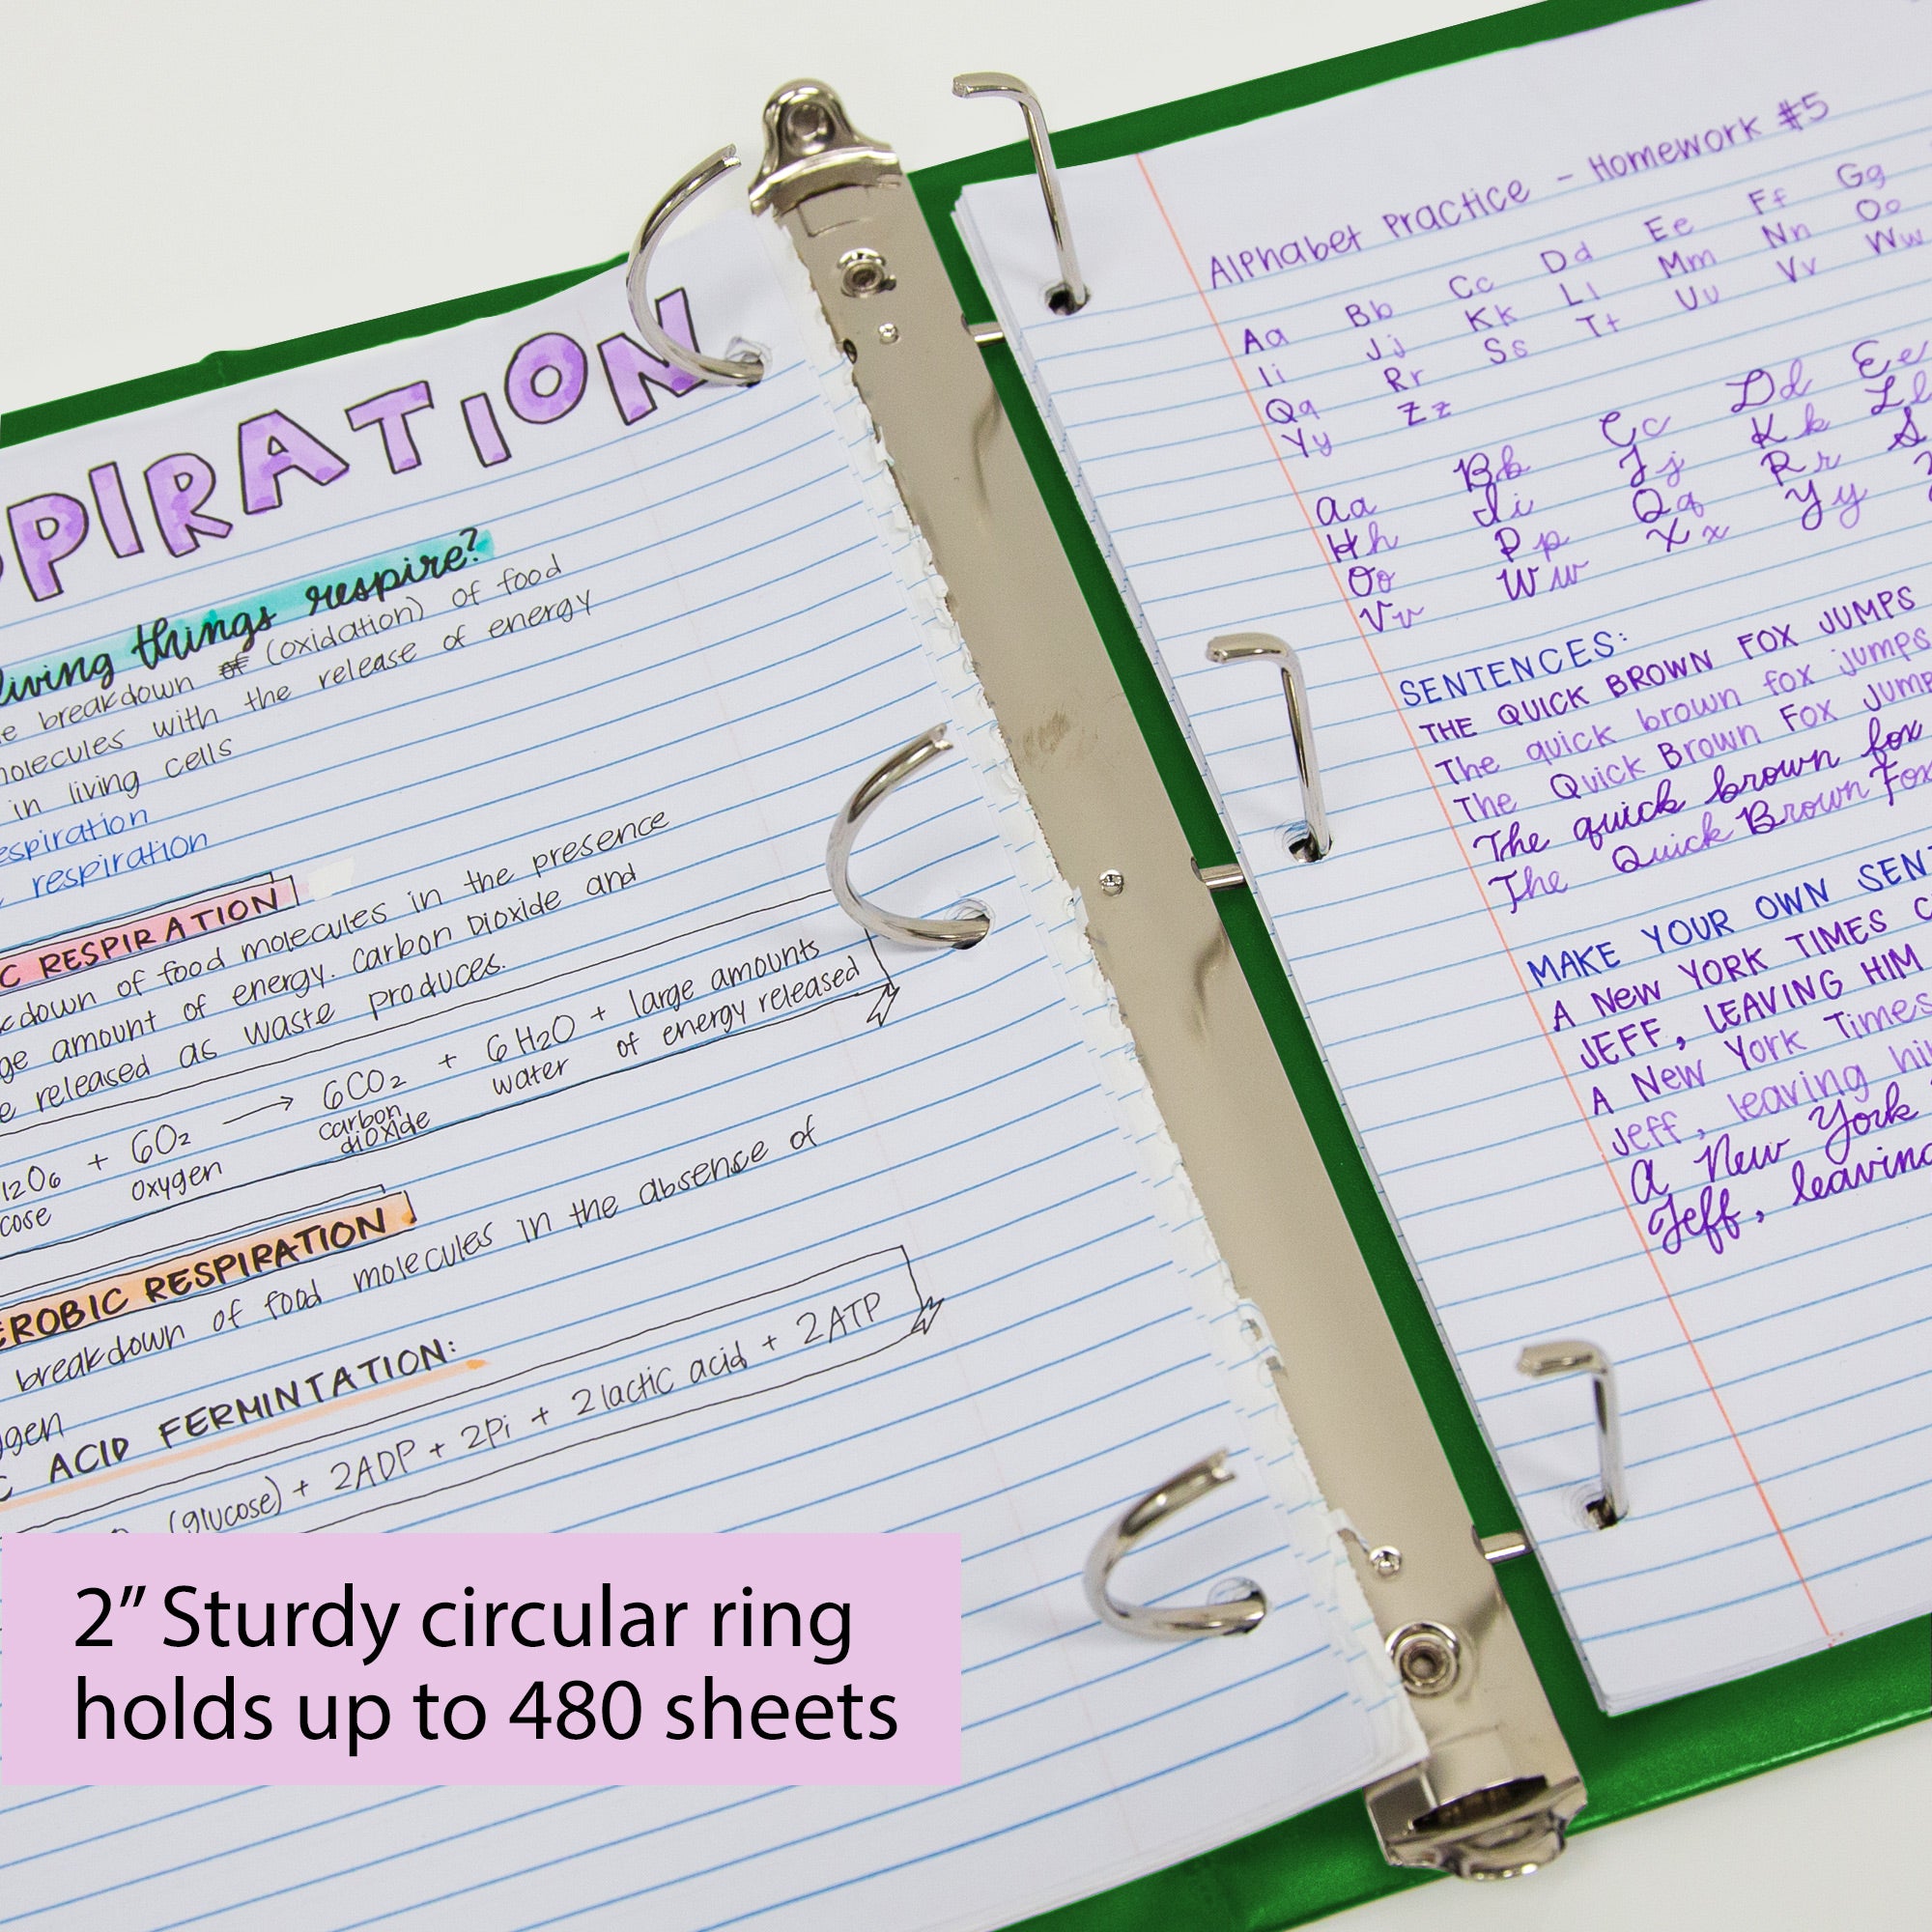 PIRATION
living things respire?
breakdown of (oxidation) of food
molecules with the release of energy
in living cells
respiration
respiration
C RESPIRATION
down of food molecules in the presence
amount of energy. Carbon Dioxide and
released as waste produces.
12O6 + 6O2 → 6CO2 + 6H2O + large amounts
oxygen carbon dioxide water of energy released
EROBIC RESPIRATION
breakdown of food molecules in the absence of
ACID FERMINTATION:
(glucose) + 2ADP + 2Pi + 2lactic acid + 2ATP
2” Sturdy circular ring
holds up to 480 sheets
Alphabet Practice - Homework #5
Aa Bb Cc Dd Ee Ff Gg
Ii Jj Kk Ll Mm Nn Oo
Qq Rr Ss Tt Uu Vv Ww
Yy Zz
Aa Bb Cc Dd Ee
Hh Ii Jj Kk Ll
Oo Pp Qq Rr S
Vv Ww Xx Yy
SENTENCES:
THE QUICK BROWN FOX JUMPS
The quick brown fox jumps
The Quick Brown Fox Jump
The quick brown fox
The Quick Brown Fox
MAKE YOUR OWN SENT
A NEW YORK TIMES C
JEFF, LEAVING HIM
A New York Times
Jeff, leaving hi
A New York
Jeff, leaving